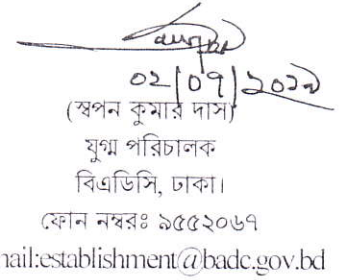 ০২/০৭/২০১৯
(স্বপন কুমার দাস)
যুগ্ম পরিচালক
বিএডিসি, ঢাকা।
ফোন নম্বরঃ ৯৫৫২০৬৭
mail:establishment@badc.gov.bd